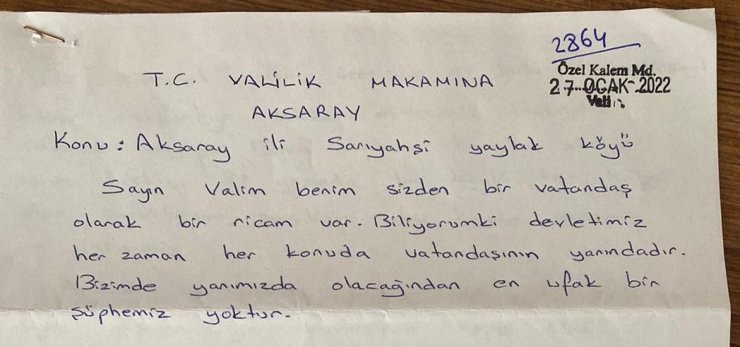 2864
Özel Kalem Md.
27 OCAK 2022
Vali
T.C. VALİLİK MAKAMINA
AKSARAY
Konu: Aksaray ili Sarıyahşi yaylak köyü
Sayın Valim benim sizden bir vatandaş
olarak bir ricam var. Biliyorumki devletimiz
her zaman her konuda vatandaşının yanındadır.
Bizimde yanımızda olacağından en ufak bir
şüphemiz yoktur.